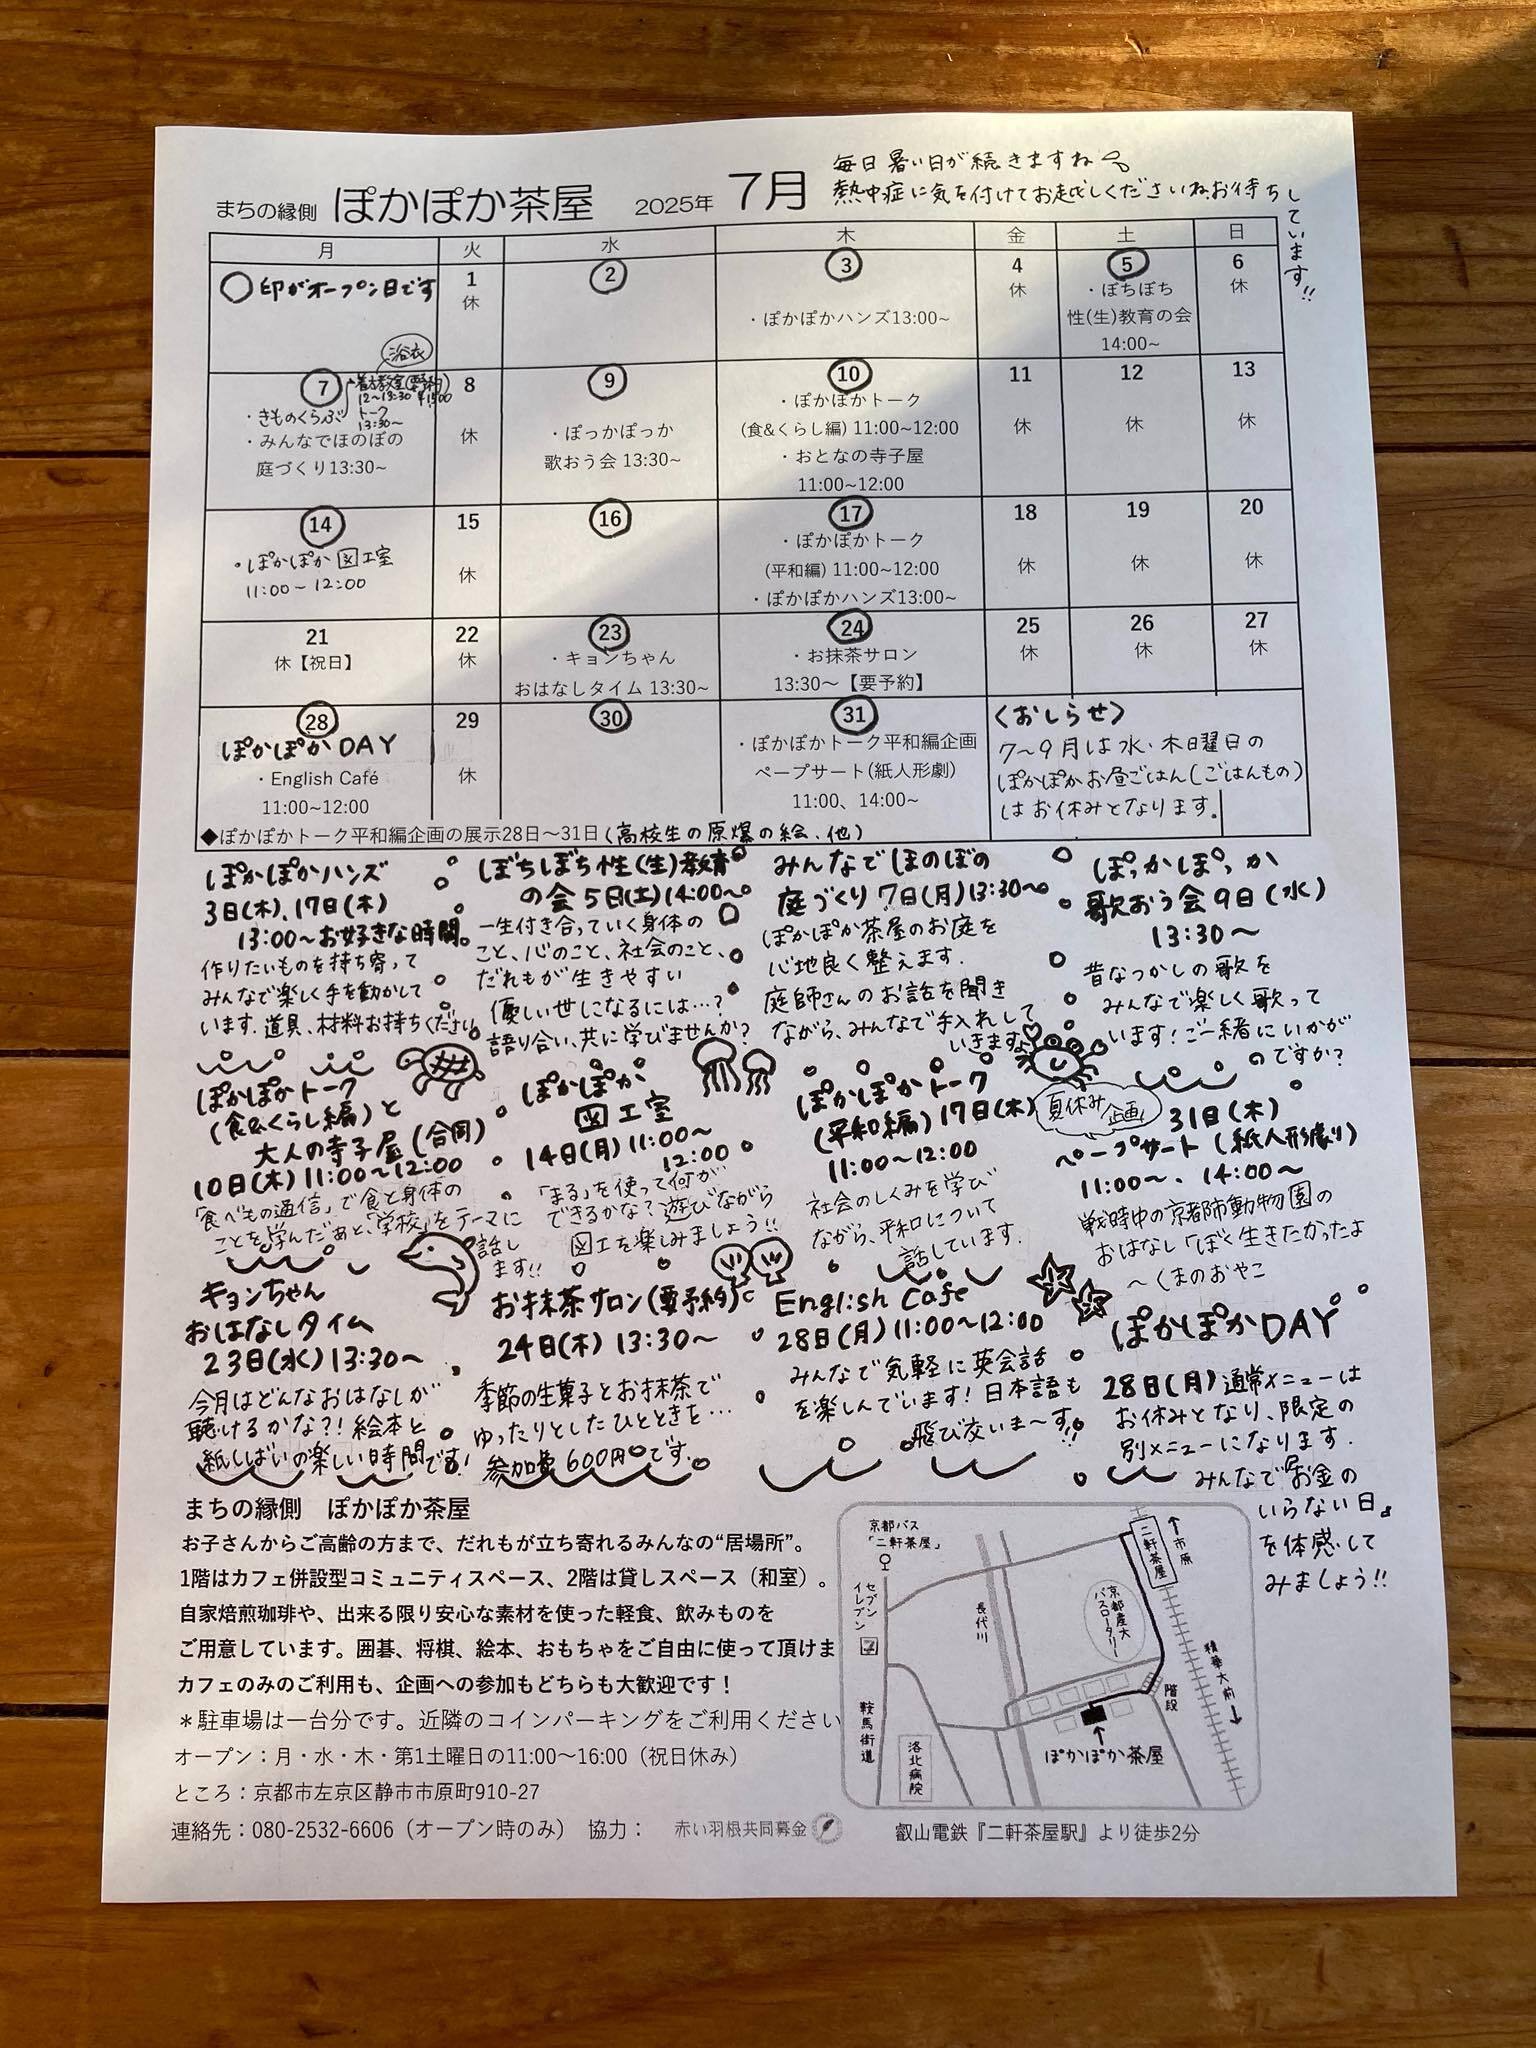 まちの縁側 ぽかぽか茶屋 2025年 7月
毎日暑い日が続きますね
熱中症に気を付けてお越しくださいね。お待ちしています!!
月 火 水 木 金 土 日
◯印がオープン日です
1
休
2
3
・ぽかぽかハンズ13:00~
4
休
5
・ぼちぼち
性(生)教育の会
14:00~
6
休
7
浴衣
着方教室(要予約)
12~13:30 ¥1500
トーク
13:30~
・きものくらぶ
・みんなでほのぼの
庭づくり13:30~
8
休
9
・ぽっかぽっか
歌おう会 13:30~
10
・ぽかぽかトーク
(食&くらし編) 11:00~12:00
・おとなの寺子屋
11:00~12:00
11
休
12
休
13
休
14
・ぽかぽか図工室
11:00~12:00
15
休
16
17
・ぽかぽかトーク
(平和編) 11:00~12:00
・ぽかぽかハンズ13:00~
18
休
19
休
20
休
21
休【祝日】
22
休
23
・キョンちゃん
おはなしタイム 13:30~
24
・お抹茶サロン
13:30~【要予約】
25
休
26
休
27
休
28
ぽかぽかDAY
・English Café
11:00~12:00
29
休
30
31
・ぽかぽかトーク平和編企画
ペープサート(紙人形劇)
11:00、14:00~
<おしらせ>
7~9月は水・木曜日の
ぽかぽかお昼ごはん(ごはんもの)
はお休みとなります。
◆ぽかぽかトーク平和編企画の展示28日~31日(高校生の原爆の絵、他)
ぽかぽかハンズ
3日(木)、17日(木)
13:00~お好きな時間。
作りたいものを持ち寄って
みんなで楽しく手を動かして
います。道具、材料お持ちください。
ぼちぼち性(生)教育
の会 5日(土)14:00~
一生付き合っていく身体の
こと、心のこと、社会のこと、
だれもが生きやすい
優しい世になるには…?
語り合い、共に学びませんか?
みんなでほのぼの
庭づくり 7日(月)13:30~
ぽかぽか茶屋のお庭を
心地良く整えます。
庭師さんのお話を聞き
ながら、みんなで手入れして
いきますよ
ぽっかぽっか
歌おう会 9日(水)
13:30~
昔なつかしの歌を
みんなで楽しく歌って
います!ご一緒にいかが
のですか?
ぽかぽかトーク
(食&くらし編)と
大人の寺子屋(合同)
10日(木)11:00~12:00
「食べもの通信」で食と身体の
ことを学んだあと、「学校」をテーマに
話し
ます!!
ぽかぽか
図工室
14日(月)11:00~
12:00
「まる」を使って何が
できるかな?遊びながら
図工を楽しみましょう!!
ぽかぽかトーク
(平和編)17日(木)
11:00~12:00
社会のしくみを学び
ながら、平和について
話しています。
夏休み企画!
31日(木)
ペープサート(紙人形劇)
11:00~、14:00~
戦時中の京都市動物園の
おはなし「ぼく生きたかったよ
~くまのおやこ
キョンちゃん
おはなしタイム
23日(水)13:30~
今月はどんなおはなしが
聴けるかな?!絵本と
紙しばいの楽しい時間です!
お抹茶サロン(要予約)
24日(木)13:30~
季節の生菓子とお抹茶で
ゆったりとしたひとときを…
参加費600円です。
English Cafe
28日(月)11:00~12:00
みんなで気軽に英会話
を楽しんでいます!日本語も
飛び交いま~す!!
ぽかぽかDAY
28日(月)通常メニューは
お休みとなり、限定の
別メニューになります。
みんなで『お金の
いらない日』
を体感して
みましょう!!
まちの縁側 ぽかぽか茶屋
お子さんからご高齢の方まで、だれもが立ち寄れるみんなの“居場所”。
1階はカフェ併設型コミュニティスペース、2階は貸しスペース(和室)。
自家焙煎珈琲や、出来る限り安心な素材を使った軽食、飲みものを
ご用意しています。囲碁、将棋、絵本、おもちゃをご自由に使って頂けま
カフェのみのご利用も、企画への参加もどちらも大歓迎です!
*駐車場は一台分です。近隣のコインパーキングをご利用ください
オープン:月・水・木・第1土曜日の11:00~16:00(祝日休み)
ところ:京都市左京区静市市原町910-27
連絡先:080-2532-6606(オープン時のみ) 協力: 赤い羽根共同募金
京都バス
「二軒茶屋」
セブンイレブン
鞍馬街道
長代川
洛北病院
京都産大バスロータリー
二軒茶屋
市原
精華大前
階段
ぽかぽか茶屋
叡山電鉄『二軒茶屋駅』より徒歩2分